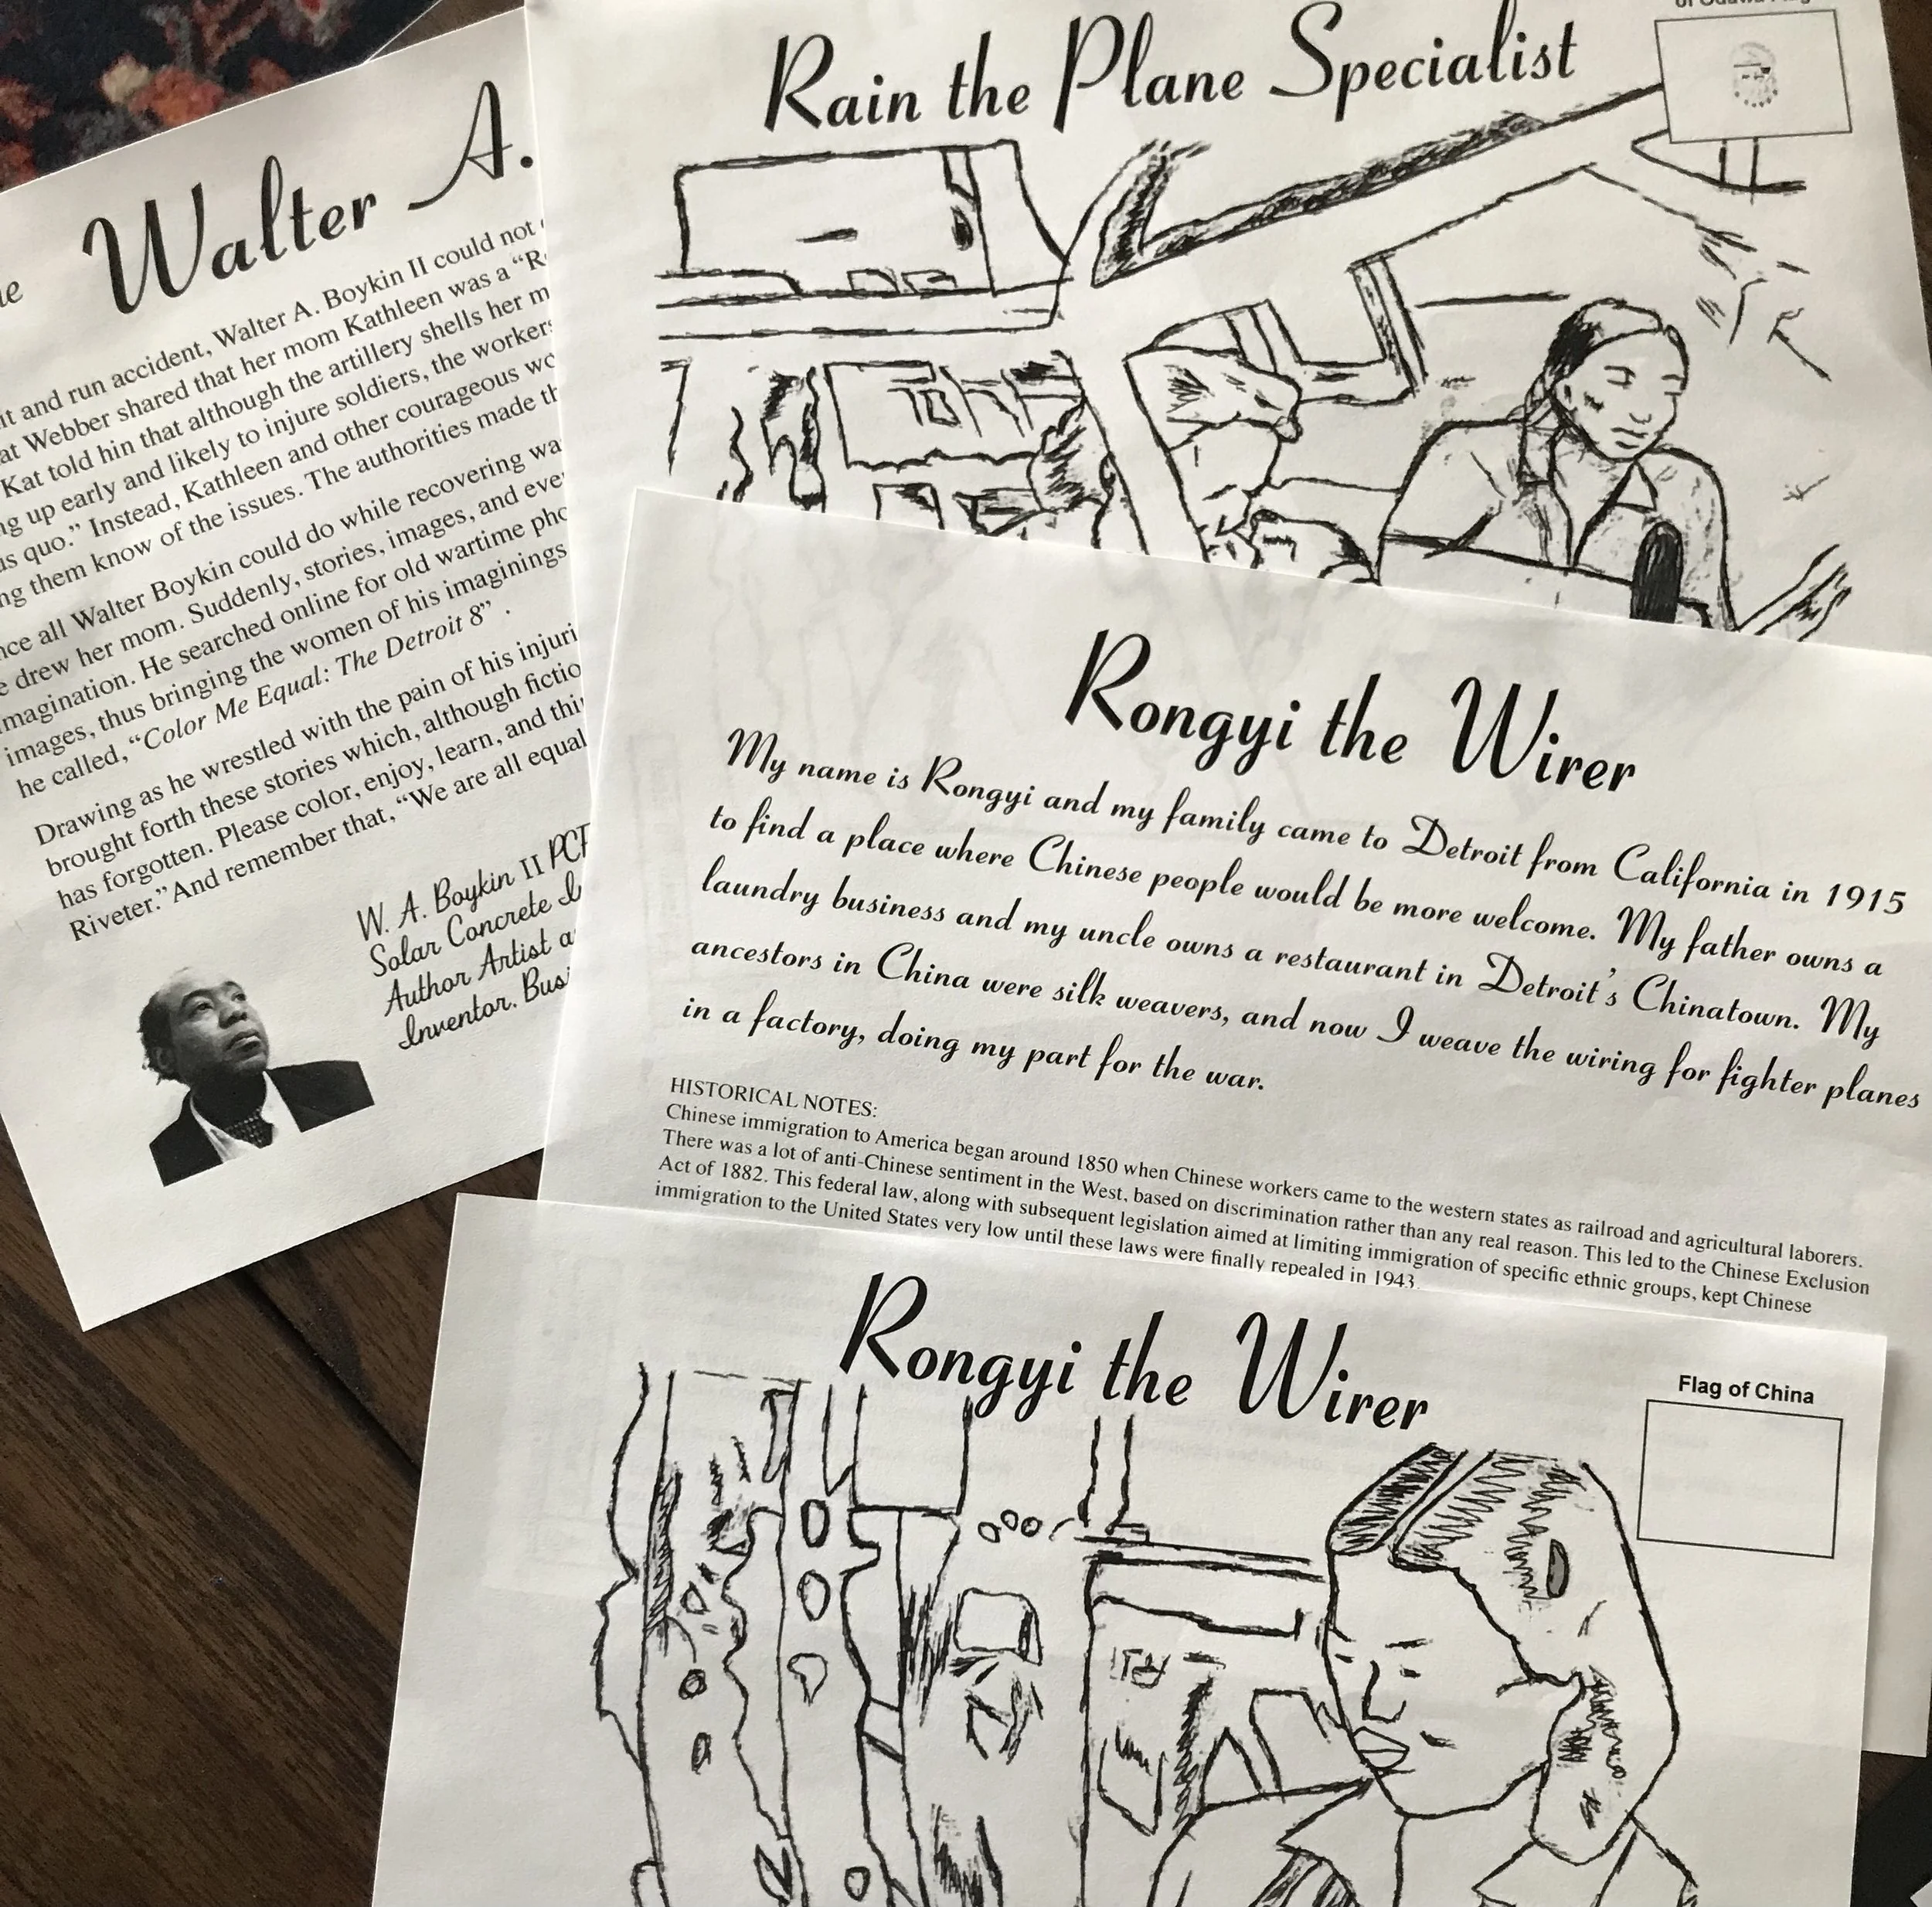 Walter A.
it and run accident, Walter A. Boykin II could not
at Webber shared that her mom Kathleen was a “R
Kat told hin that although the artillery shells her m
ng up early and likely to injure soldiers, the workers
us quo.” Instead, Kathleen and other courageous wo
ng them know of the issues. The authorities made th
nce all Walter Boykin could do while recovering wa
e drew her mom. Suddenly, stories, images, and eve
magination. He searched online for old wartime pho
images, thus bringing the women of his imaginings
he called, “Color Me Equal: The Detroit 8” .
Drawing as he wrestled with the pain of his injuri
brought forth these stories which, although fictio
has forgotten. Please color, enjoy, learn, and thi
Riveter.” And remember that, “We are all equal
W. A. Boykin II PCF
Solar Concrete I
Author Artist a
Inventor. Busi
Rain the Plane Specialist
Rongyi the Wirer
My name is Rongyi and my family came to Detroit from California in 1915
to find a place where Chinese people would be more welcome. My father owns a
laundry business and my uncle owns a restaurant in Detroit’s Chinatown. My
ancestors in China were silk weavers, and now I weave the wiring for fighter planes
in a factory, doing my part for the war.
HISTORICAL NOTES:
Chinese immigration to America began around 1850 when Chinese workers came to the western states as railroad and agricultural laborers.
There was a lot of anti-Chinese sentiment in the West, based on discrimination rather than any real reason. This led to the Chinese Exclusion
Act of 1882. This federal law, along with subsequent legislation aimed at limiting immigration of specific ethnic groups, kept Chinese
immigration to the United States very low until these laws were finally repealed in 1943.
Rongyi the Wirer
Flag of China